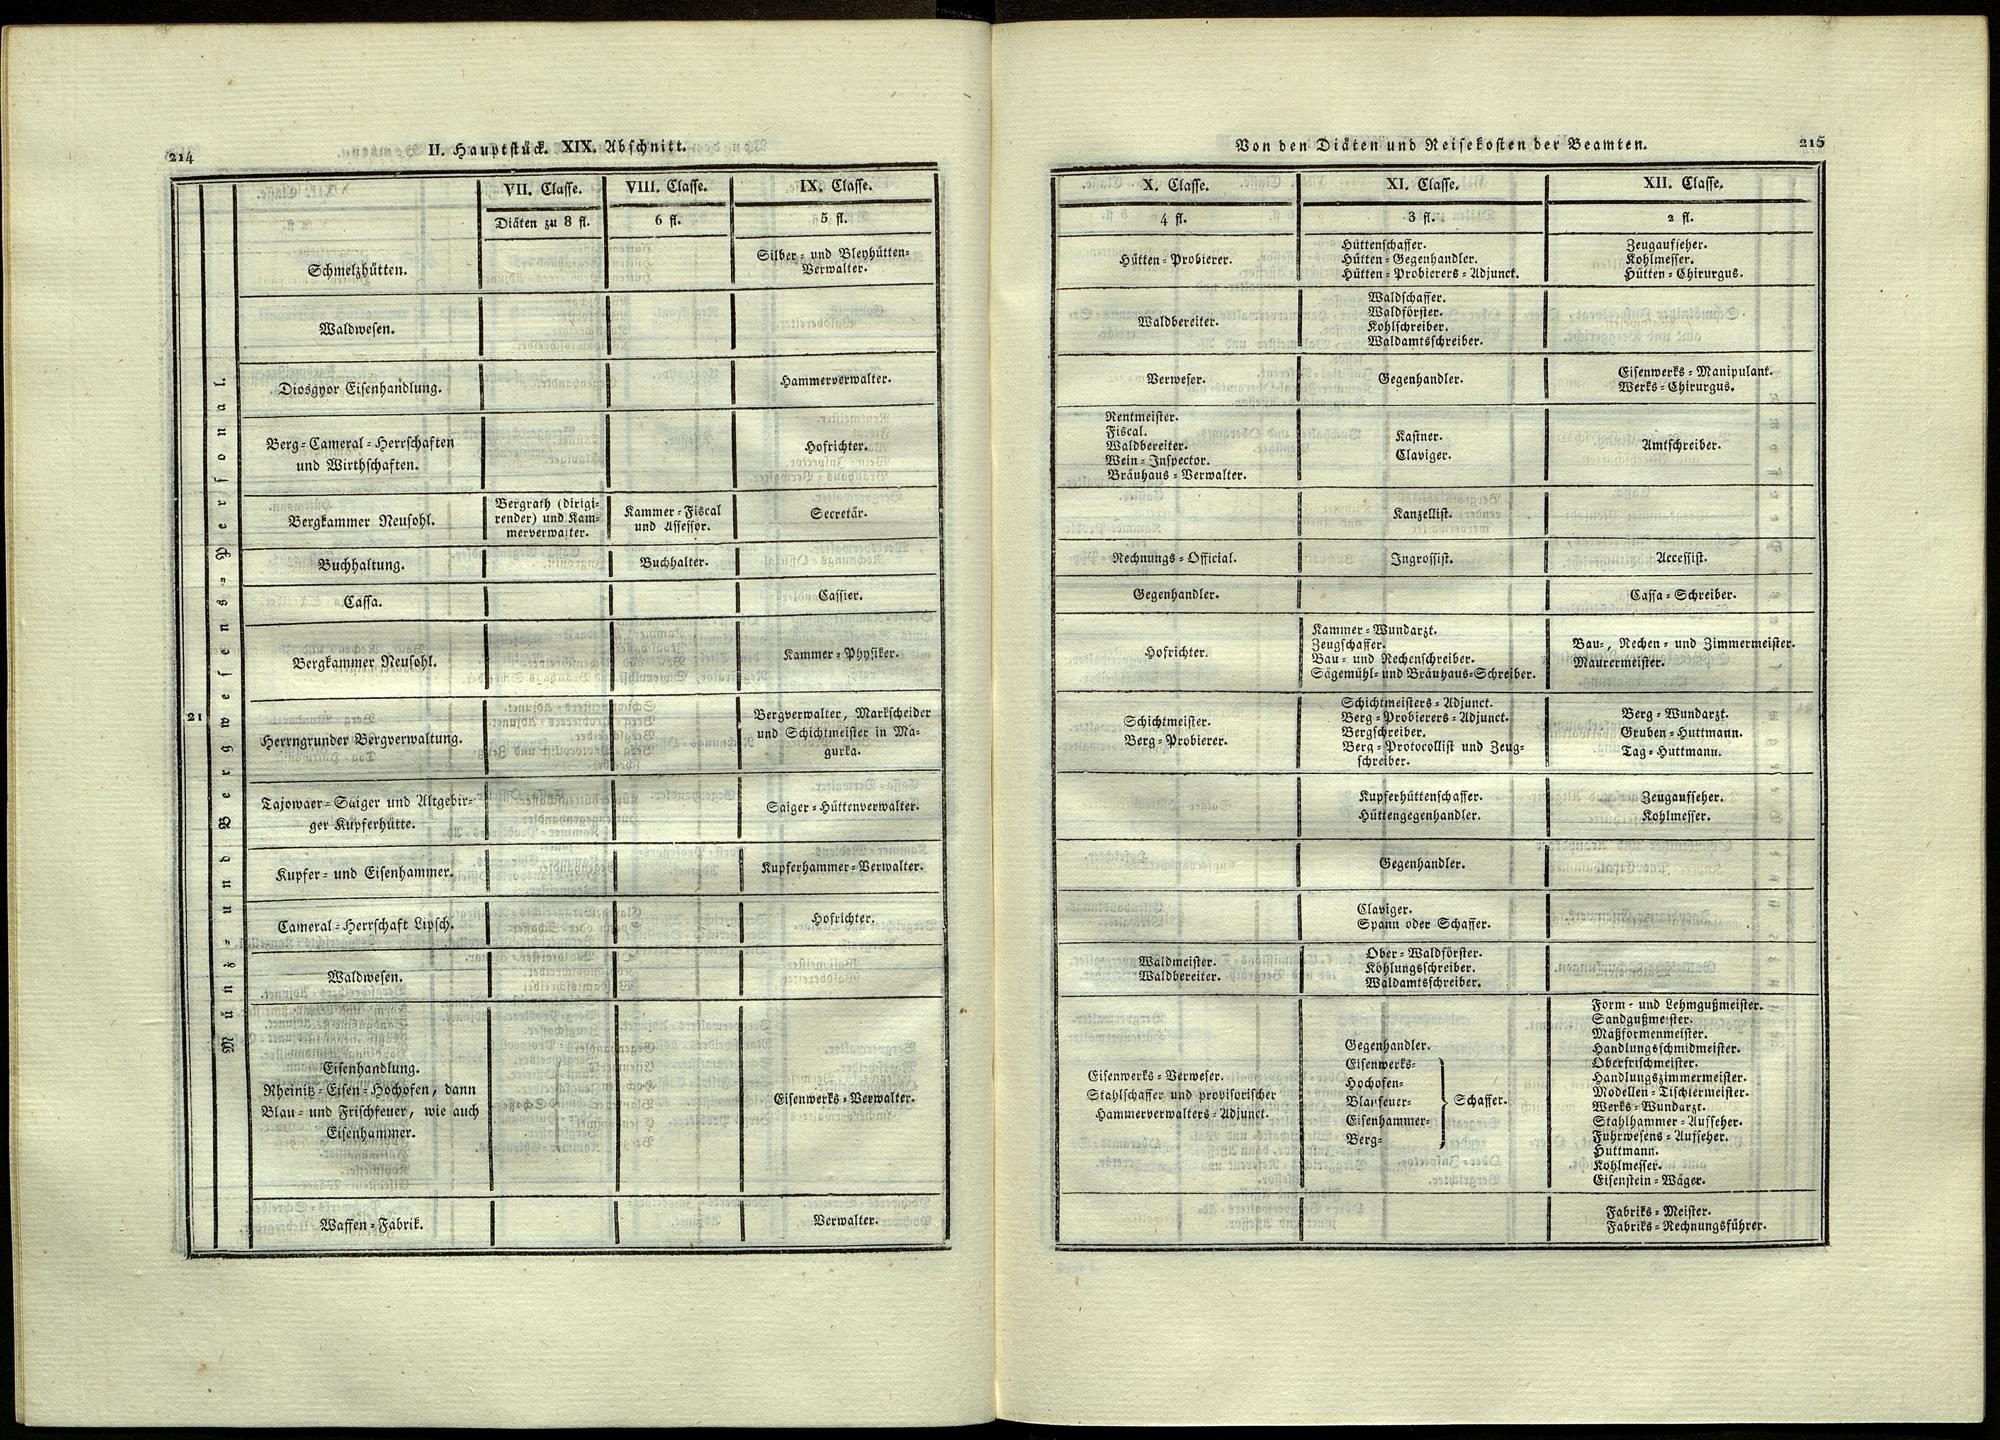 214
II. Hauptstück. XIX. Abschnitt.
VII. Classe.
VIII. Classe.
IX. Classe.
Diäten zu 8 fl.
6 fl.
5 fl.
21
Münz- und Bergwesens-Personal.
Schmelzhütten.
Silber- und Bleyhütten-
Verwalter.
Waldwesen.
Diosgyor Eisenhandlung.
Hammerverwalter.
Berg-Cameral-Herrschaften
und Wirthschaften.
Hofrichter.
Bergkammer Neusohl.
Bergrath (dirigi-
render) und Kam-
merverwalter.
Kammer-Fiscal
und Assessor.
Secretär.
Buchhaltung.
Buchhalter.
Cassa.
Cassier.
Bergkammer Neusohl.
Kammer-Physiker.
Herrngrunder Bergverwaltung.
Bergverwalter, Markscheider
und Schichtmeister in Ma-
gurka.
Tajowaer-Saiger und Altgebir-
ger Kupferhütte.
Saiger-Hüttenverwalter.
Kupfer- und Eisenhammer.
Kupferhammer-Verwalter.
Cameral-Herrschaft Lipsch.
Hofrichter.
Waldwesen.
Eisenhandlung.
Rheinitz-Eisen-Hochofen, dann
Blau- und Frischfeuer, wie auch
Eisenhammer.
Eisenwerks-Verwalter.
Waffen-Fabrik.
Verwalter.
Von den Diäten und Reisekosten der Beamten.
215
X. Classe.
XI. Classe.
XII. Classe.
4 fl.
3 fl.
2 fl.
Hütten-Probierer.
Hüttenschaffer.
Hütten-Gegenhandler.
Hütten-Probierers-Adjunct.
Zeugaufseher.
Kohlmesser.
Hütten-Chirurgus.
Waldbereiter.
Waldschaffer.
Waldförster.
Kohlschreiber.
Waldamtsschreiber.
Verweser.
Gegenhandler.
Eisenwerks-Manipulant.
Werks-Chirurgus.
Rentmeister.
Fiscal.
Waldbereiter.
Wein-Inspector.
Bräuhaus-Verwalter.
Kastner.
Claviger.
Amtschreiber.
Kanzellist.
Rechnungs-Official.
Ingrossist.
Accessist.
Gegenhandler.
Cassa-Schreiber.
Hofrichter.
Kammer-Wundarzt.
Zeugschaffer.
Bau- und Rechenschreiber.
Sägemühl- und Bräuhaus-Schreiber.
Bau-, Rechen- und Zimmermeister.
Maurermeister.
Schichtmeister.
Berg-Probierer.
Schichtmeisters-Adjunct.
Berg-Probierers-Adjunct.
Bergschreiber.
Berg-Protocollist und Zeug-
schreiber.
Berg-Wundarzt.
Gruben-Huttmann.
Tag-Huttmann.
Kupferhüttenschaffer.
Hüttengegenhandler.
Zeugaufseher.
Kohlmesser.
Gegenhandler.
Claviger.
Spann oder Schaffer.
Waldmeister.
Waldbereiter.
Ober-Waldförster.
Kohlungsschreiber.
Waldamtsschreiber.
Eisenwerks-Verweser.
Stahlschaffer und provisorischer
Hammerverwalters-Adjunct.
Gegenhandler.
Eisenwerks-
Hochofen-
Blaufeuer-
Eisenhammer-
Berg-
Schaffer.
Form- und Lehmgußmeister.
Sandgußmeister.
Maßformenmeister.
Handlungsschmidmeister.
Oberfrischmeister.
Handlungszimmermeister.
Modellen-Tischlermeister.
Werks-Wundarzt.
Stahlhammer-Aufseher.
Fuhrwesens-Aufseher.
Huttmann.
Kohlmesser.
Eisenstein-Wäger.
Fabriks-Meister.
Fabriks-Rechnungsführer.